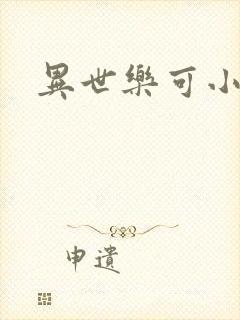 異世樂可小
申遺